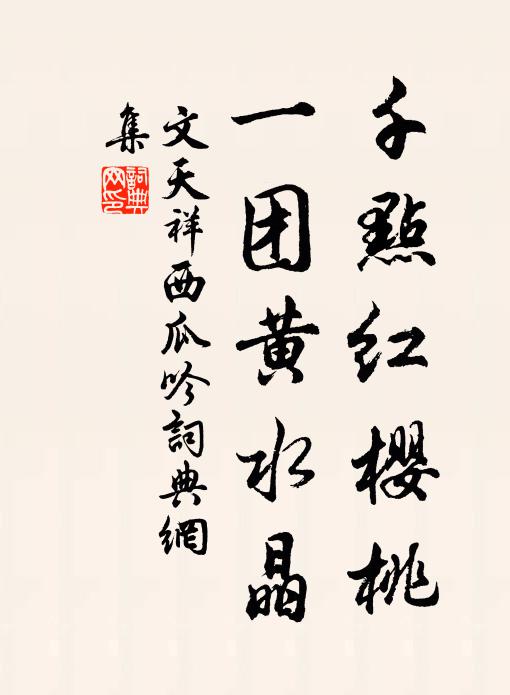 千點红櫻桃
一团黄水晶
文天祥西瓜吟詞典網
集
詞典
网印